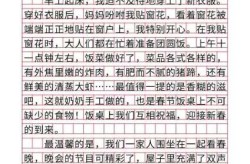 穿好衣服后，妈妈吩咐我贴窗花，看着窗花被
端端正正地贴在窗户上，我特别开心。在我贴
窗花时，大人们都在忙着准备团圆饭。上午十
一点钟左右，饭菜做好了，菜品各式各样的。
有外焦里嫩的炸肉，有肥而不腻的猪蹄，还有
鲜美的清蒸大虾……最值得一提的是香糯的滋
粑，这就奶奶手工做的，也是春节饭桌上不可
缺少的食物！饭桌上我们互相祝福，迎接新春
的到来。
最温馨的是，我们一家人围坐在一起看春
晚，晚会的节目可精彩了，屋子里充满了欢声